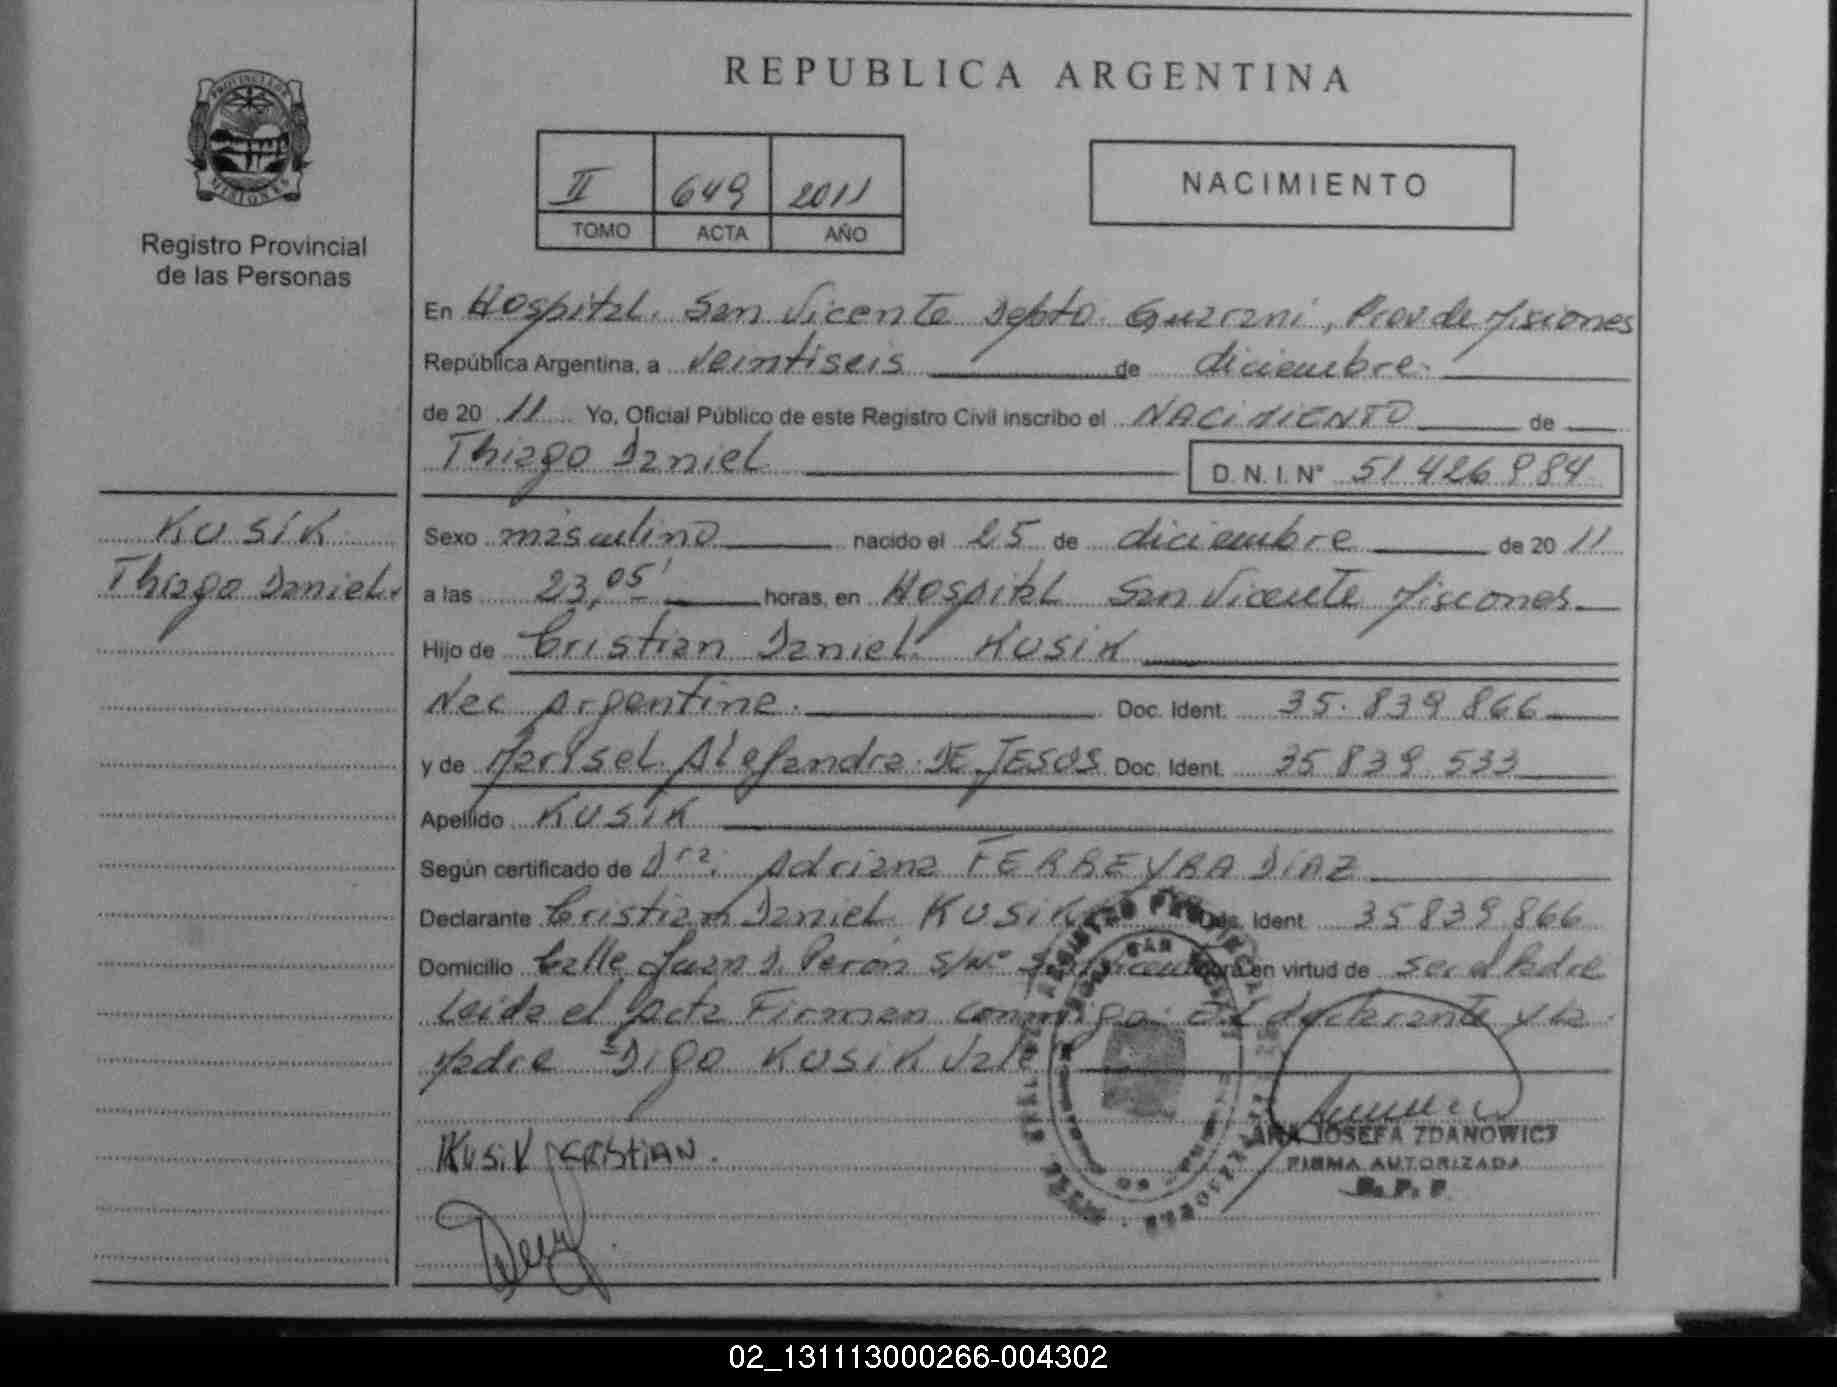 REPUBLICA ARGENTINA
PROVINCIA DE
MISIONES
Registro Provincial
de las Personas
II 649 2011
TOMO ACTA AÑO
NACIMIENTO
En Hospital San Vicente Depto. Guarani, Prov de Misiones
República Argentina, a veintiseis de diciembre
de 20 11 Yo, Oficial Público de este Registro Civil inscribo el NACIMIENTO de
Thiago Daniel D. N. I. Nº 51 426 984
KUSIK
Thiago Daniel
Sexo masculino nacido el 25 de diciembre de 20 11
a las 23,05' horas, en Hospital San Vicente Misiones
Hijo de Cristian Daniel KUSIK
Nac Argentina. Doc. Ident. 35.839 866
y de Marisel Alejandra DE JESUS Doc. Ident. 35 839 533
Apellido KUSIK
Según certificado de Dra: Adriana FERREYRA DIAZ
Declarante Cristian Daniel KUSIK Doc. Ident. 35 839 866
Domicilio Calle Juan D. Perón S/Nº en virtud de ser el Padre
Leida el Acta Firman conmigo El declarante y la
Madre Digo KUSIK Vale
KUSIK CRISTIAN.
ANA JOSEFA ZDANOWICZ
FIRMA AUTORIZADA
R. P. P.
02_131113000266-004302